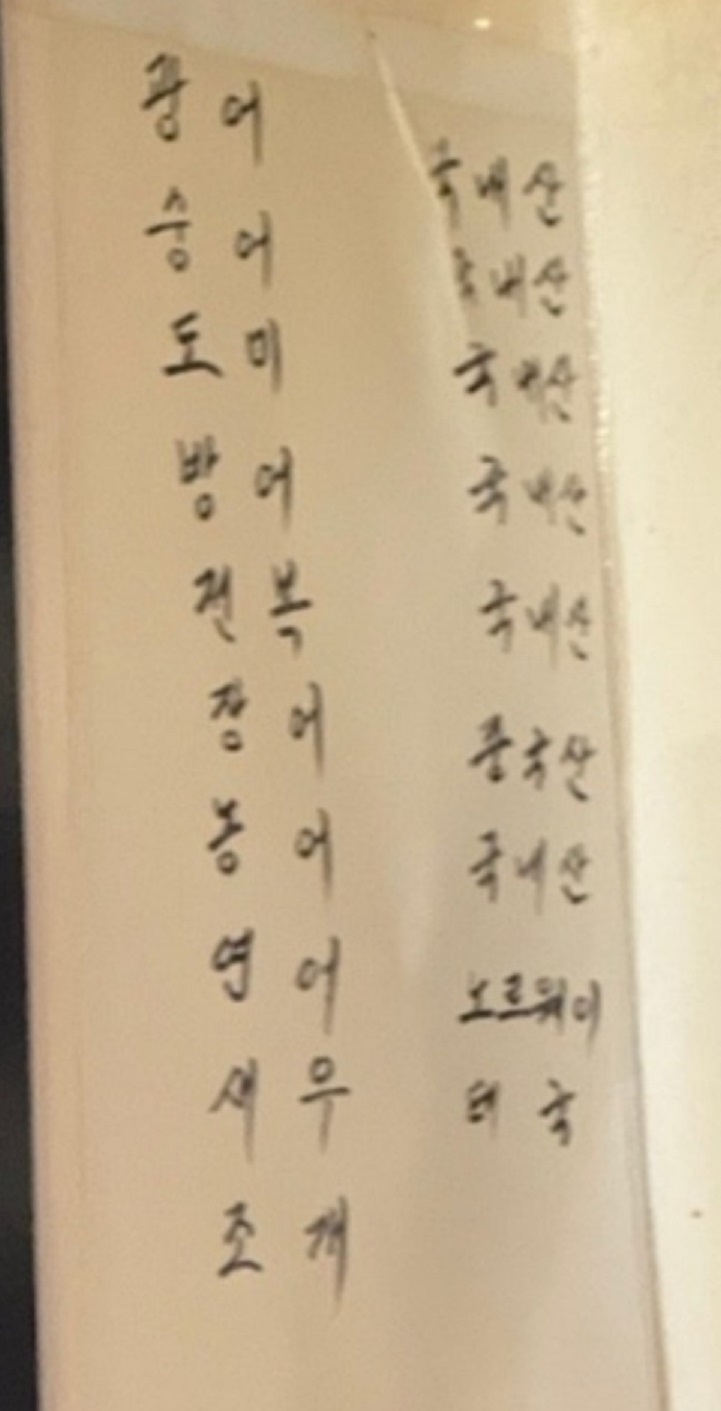 광어 국내산
숭어 국내산
도미 국내산
방어 국내산
전복 국내산
장어 중국산
농어 국내산
연어 노르웨이
새우 태국
조개